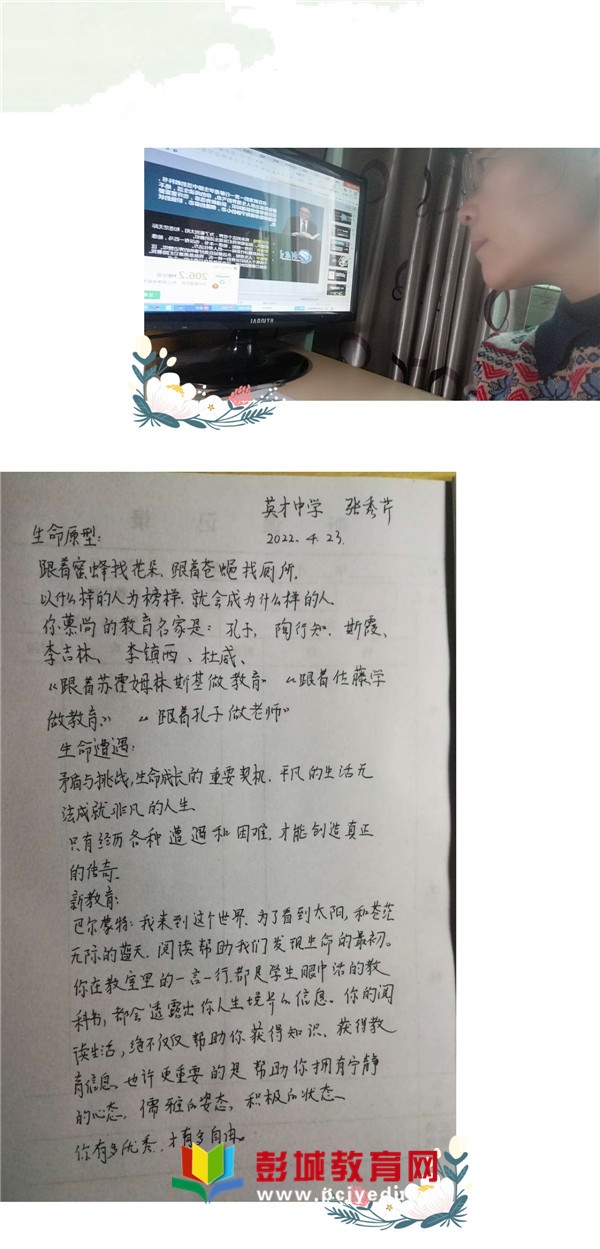 英才中学 张秀芹
生命原型: 2022.4.23.
跟着蜜蜂找花朵、跟着苍蝇找厕所.
以什么样的人为榜样.就会成为什么样的人.
你慕尚的教育名家是: 孔子, 陶行知. 斯霞、
李吉林、李镇西、杜威、
"跟着苏霍姆林斯基做教育" "跟着佐藤学
做教育" "跟着孔子做老师"
生命遭遇:
矛盾与挑战,生命成长的重要契机.平凡的生活无
法成就非凡的人生
只有经历各种遭遇和困难.才能创造真正
的传奇.
新教育:
巴尔蒙特:我来到这个世界、为了看到太阳,和苍茫
无际的蓝天.阅读帮助我们发现生命的最初。
你在教室里的一言一行.都是学生眼中活的教
科书,都会透露出你人生境界的信息。你的阅
读生活,绝不仅仅帮助你获得知识、获得教
育信息、也许更重要的是帮助你拥有宁静
的心态、儒雅的姿态、积极的状态、
你有多优秀.才有多自由。
彭城教育网
www.pcjyedu